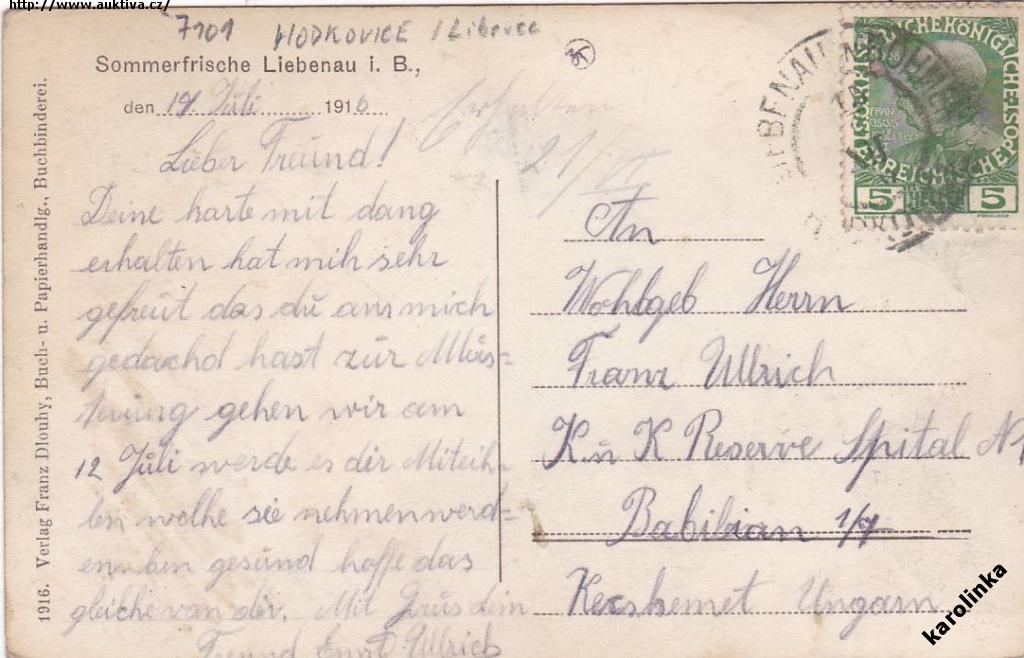 http://www.auktiva.cz/
7101 HODKOVICE / Liberec
Sommerfrische Liebenau i. B.,
den 19 Juli 1916
Erhalten
21/VI
Lieber Freund!
Deine karte mit dang
erhalten hat mih sehr
gefreut das du am mich
gedachd hast zur Mus=
terung gehen wir am
12 Juli werde es dir Miteih-
len welhe sie nehmen werd=
en. ben gesund hoffe das
gleiche van dir. Mit Grus dein
Freund Ernst Ullrich
An
Wohlgeb Herrn
Franz Ullrich
K u K Reserve Spital
Babilian 1/9
Kecskemet Ungarn
5 5
1916. Verlag Franz Dlouhy, Buch- u. Papierhandlg., Buchbinderei.
karolinka